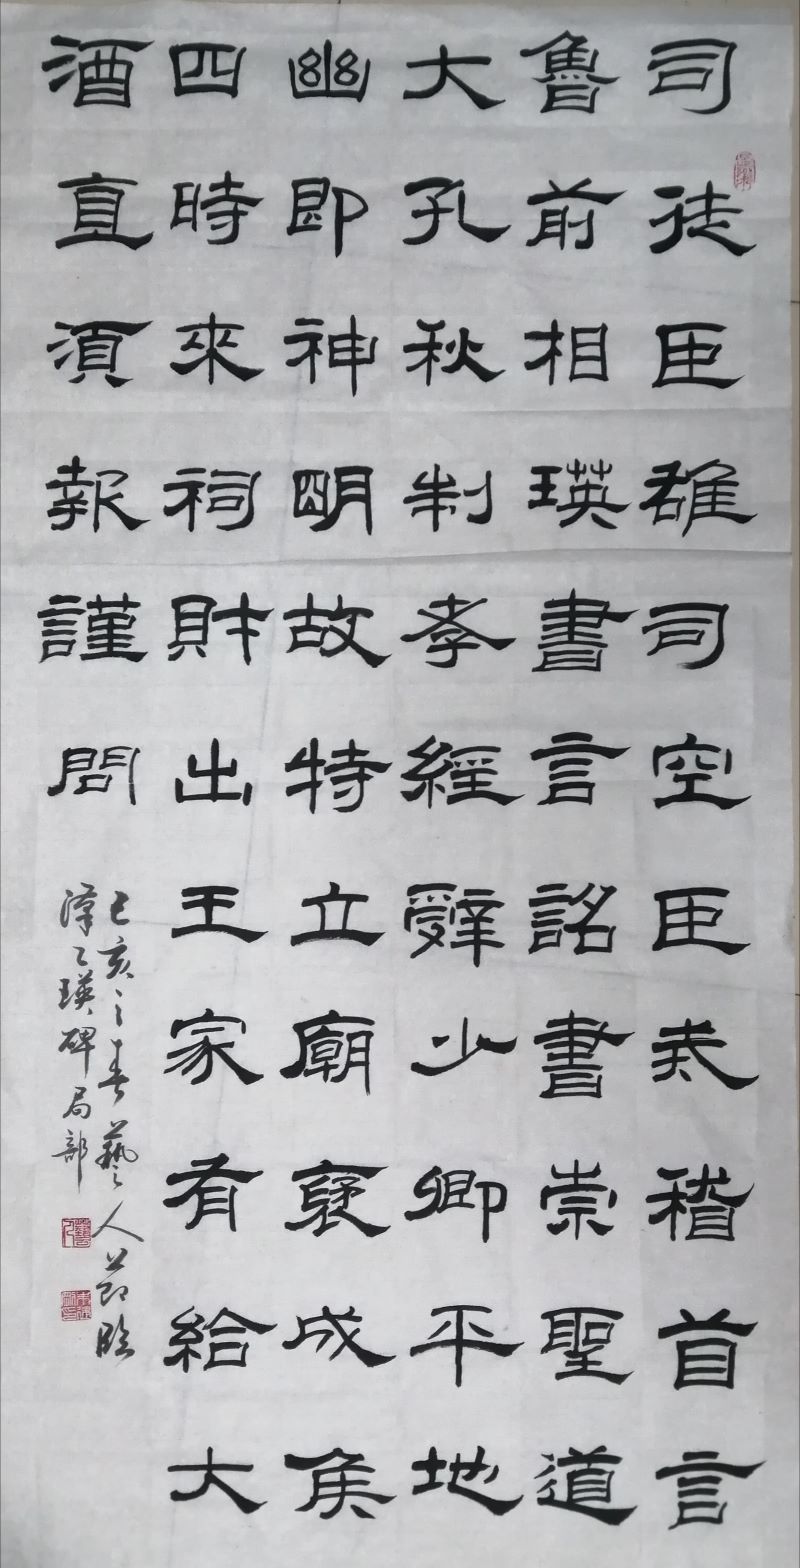 司徒臣雄司空臣戒稽首言
魯前相瑛書言詔書崇聖道
大孔秋制孝經辤少卿平地
幽即神明故特立廟褒成侯
四時來祠財出王家有給大
酒直須報謹問
己亥之春藝人節臨
漢乙瑛碑局部